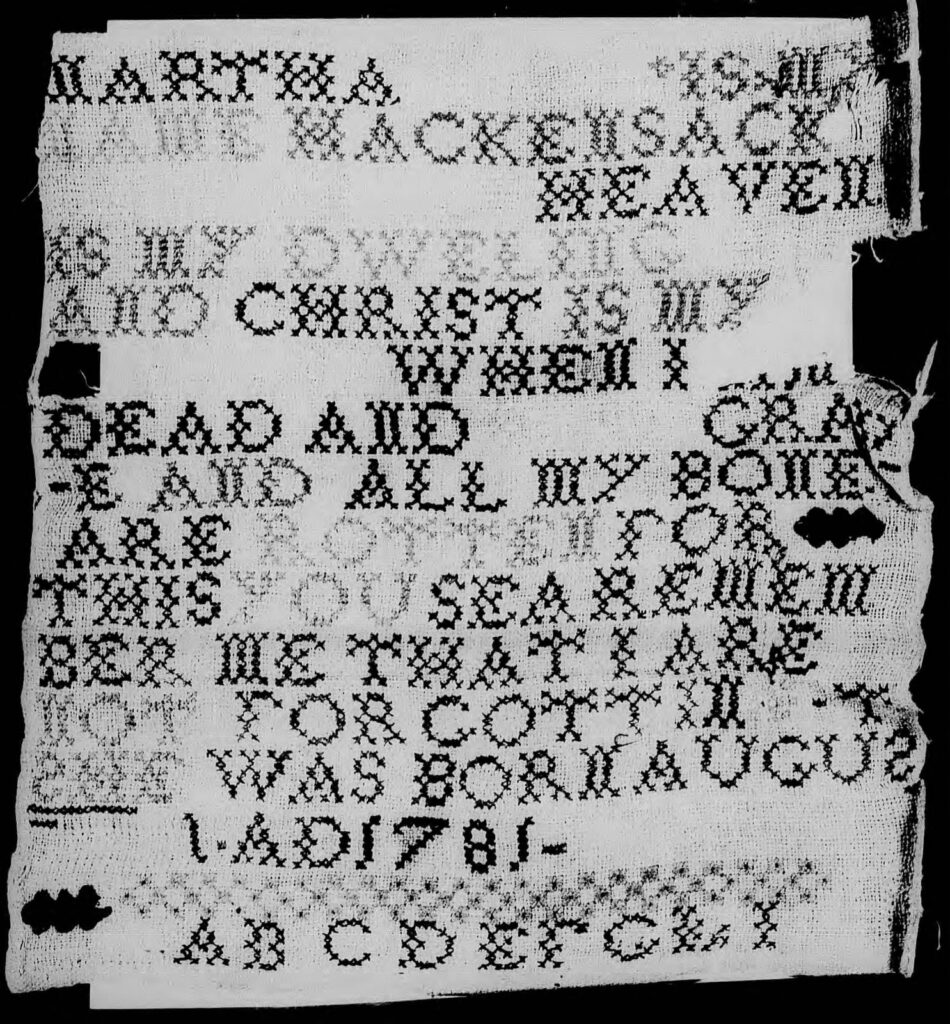 MARTHA IS MY
NAME HACKENSACK
HEAVEN
IS MY DWELING
AND CHRIST IS MY
WHEN I
DEAD AND GRAV
-E AND ALL MY BONE-
ARE ROTTEN FOR
THIS YOU SEA REMEM
BER ME THAT I ARE
NOT FORGOTTIN
WAS BORN AUGUS
1-AD1781-
A B C D E F G H I